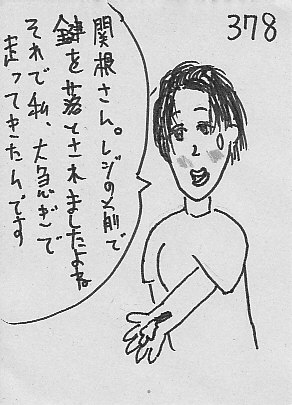 378
関根さん。レジの前で
鍵を落とされましたよね
それで私、大急ぎで
走ってきたんです